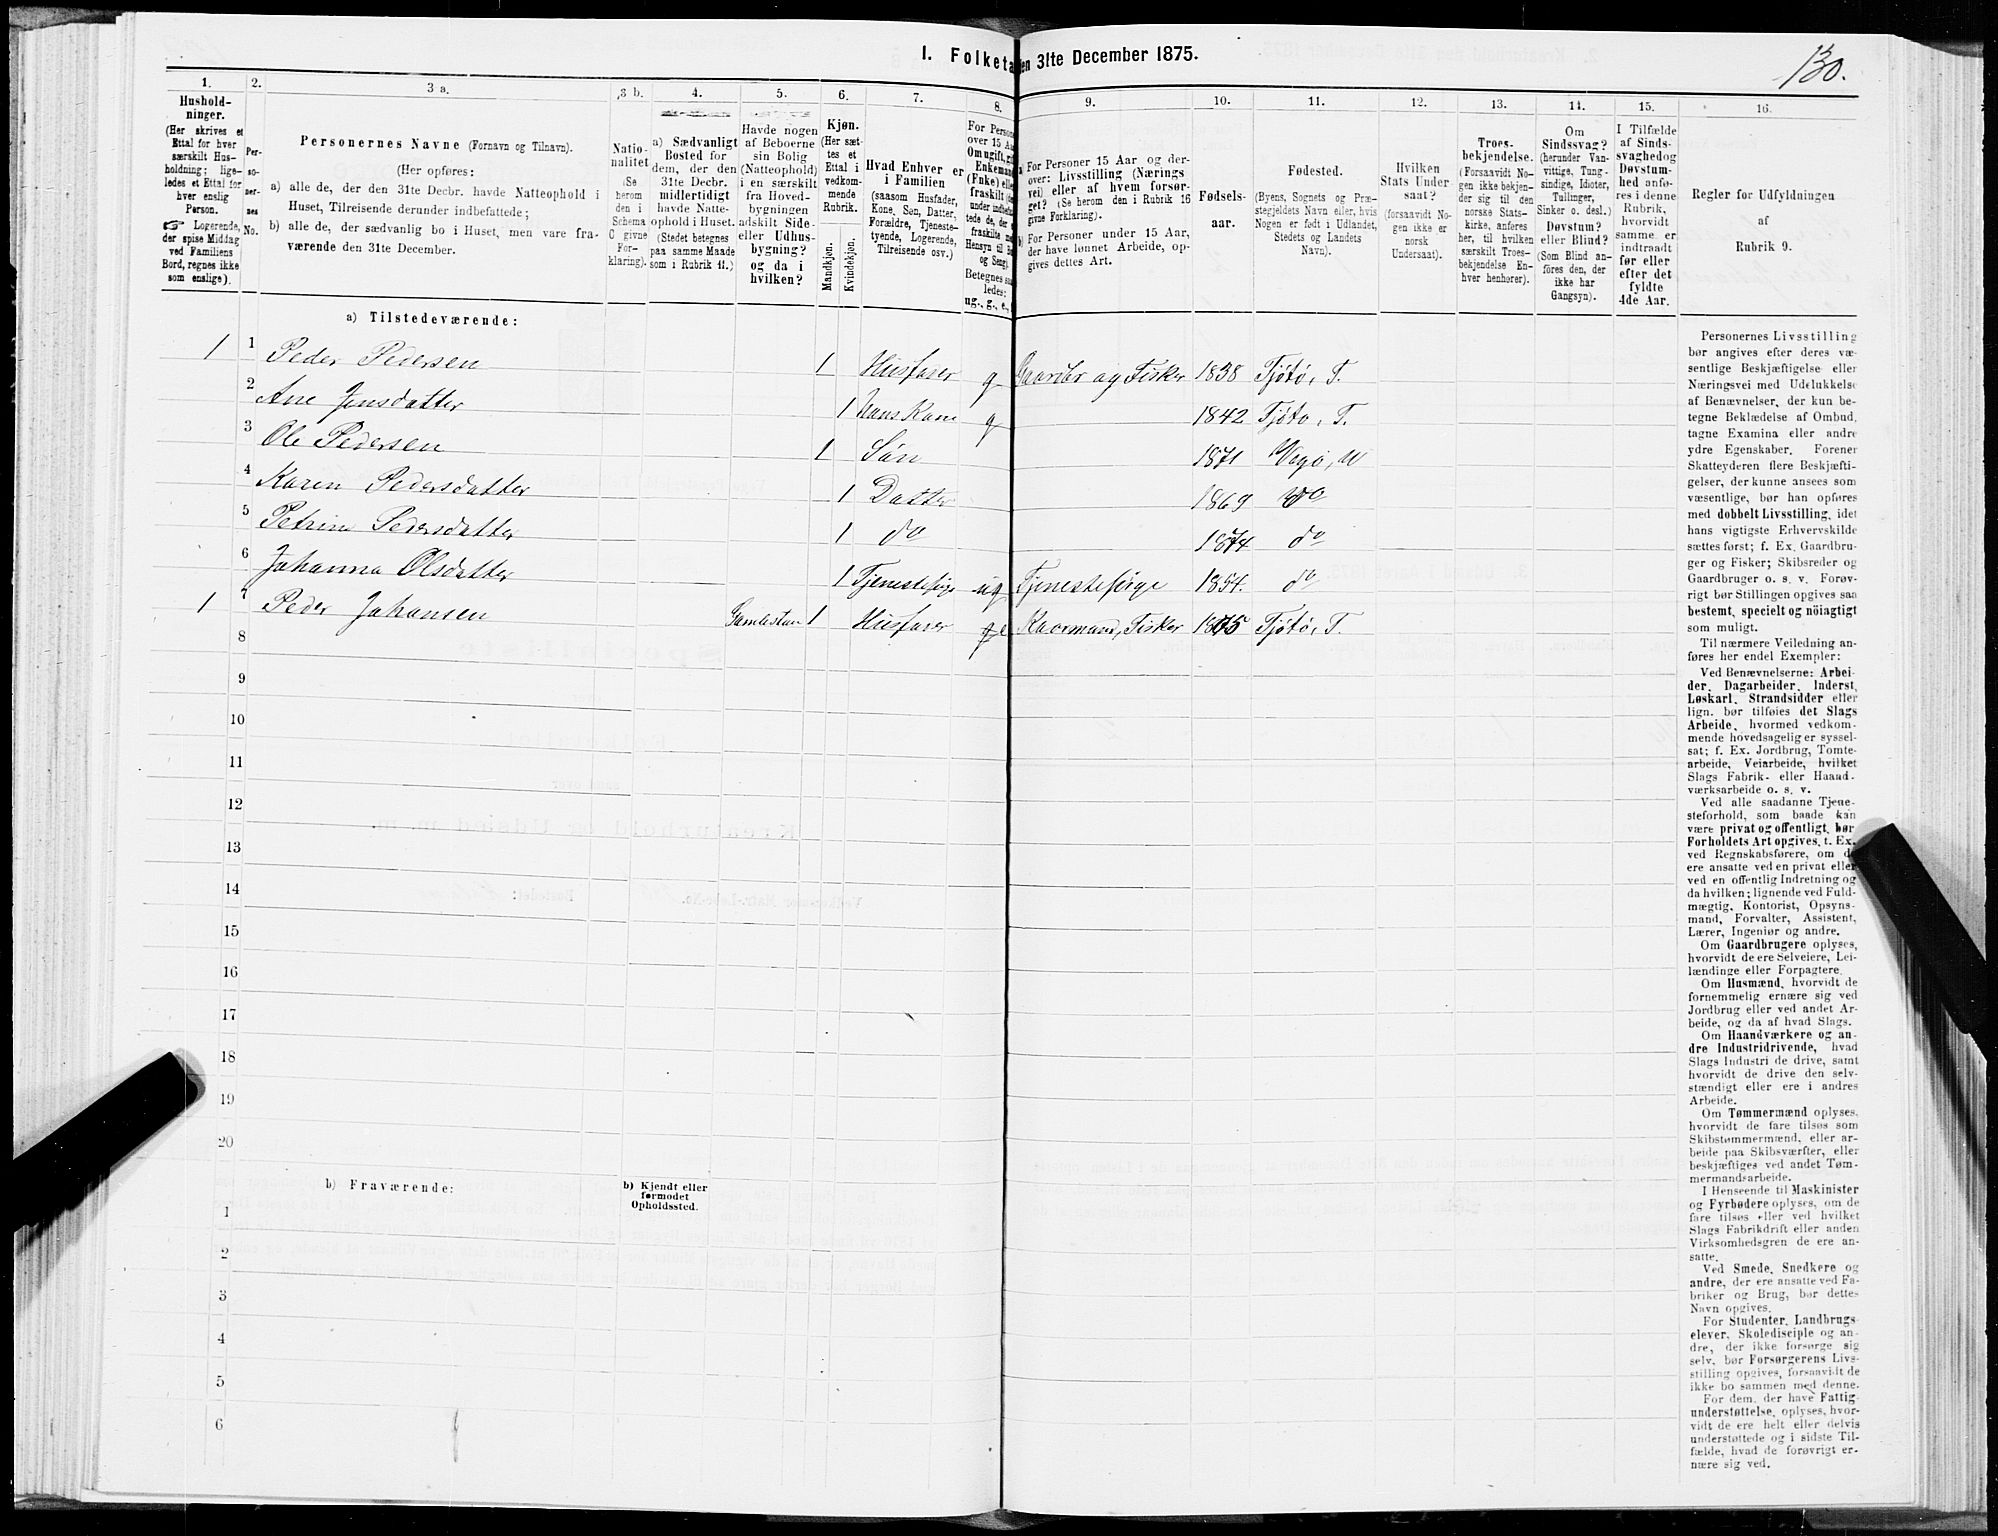 130.
I. Folketa en 31te December 1875.
1. 2. 3 a. 3 b. 4. 5. 6. 7. 8. 9. 10. 11. 12. 13. 14. 15. 16.
Hushold-
ninger.
(Her skrives et
Ettal for hver
særskilt Hus-
holdning; lige-
ledes et Ettal for
hver enslig
Person.
☞ Logerende,
der spise Middag
ved Familiens
Bord, regnes ikke
som enslige).
Per-
so-
ner-
nes
No.
Personernes Navne (Fornavn og Tilnavn).
(Her opføres:
a) alle de, der den 31te Decbr. havde Natteophold i
Huset, Tilreisende derunder indbefattede;
b) alle de, der sædvanlig bo i Huset, men vare fra-
værende den 31te December.
Natio-
nalitet
(Se
herom
den i
Schema
C givne
For-
klaring).
a) Sædvanligt
Bosted for
dem, der den
31te Decbr.
midlertidigt
havde Natte-
ophold i Huset.
(Stedet betegnes
paa samme Maade
som i Rubrik 11.)
Havde nogen
af Beboerne
sin Bolig
(Natteophold)
i en særskilt
fra Hoved-
bygningen
adskilt Side-
eller Udhus-
bygning?
og da i
hvilken?
Kjøn.
(Her sæt-
tes et
Ettal i
vedkom-
mende
Rubrik.
Mandkjøn.
Kvindekjøn.
Hvad Enhver er
i Familien
(saasom Husfader,
Kone, Søn, Datter,
Forældre, Tjeneste-
tyende, Logerende,
Tilreisende osv.)
For Persone
over 15 Aar
Om ugift, gif
Enkemand
(Enke) elle
fraskilt
under indbe
tede de, de
fraskilte
Hensyn til B
og Seng).
Betegnes saa
ledes:
ug., g., e.,
a) For Personer 15 Aar og der-
over: Livsstilling (Nærings
vei) eller af hvem forsør-
get? (Se herom den i Rubrik 16
givne Forklaring).
b) For Personer under 15 Aar,
der have lønnet Arbeide, op-
gives dettes Art.
Fødsels-
aar.
Fødested.
(Byens, Sognets og Præ-
stegjeldets Navn eller, hvis
Nogen er født i Udlandet,
Stedets og Landets
Navn).
Hvilken
Stats Under-
saat?
(forsaavidt No-
gen ikke er
norsk
Undersaat).
Troes-
bekjendelse.
(Forsaavidt No-
gen ikke bekjen-
der sig til den
norske Stats-
kirke, anføres
her, til hvilken
særskilt Troes-
bekjendelse En-
hver henhører).
Om
Sindssvag?
(herunder Van-
vittige, Tung-
sindige, Idioter,
Tullinger,
Sinker o. desl.)
Døvstum?
eller Blind?
(Som Blind an-
føres den, der
ikke har
Gangsyn).
I Tilfælde
af Sinds-
svaghed og
Døvstum-
hed anfø-
res i denne
Rubrik,
hvorvidt
samme er
indtraadt
før eller
efter det
fyldte
4de Aar.
Regler for Udfyldningen
af
Rubrik 9.
a) Tilstedeværende:
1 1 Peder Pedersen 1 Husfader g Gaardbr og Fisker 1838 Tjøtø, T.
2 Ane Jensdatter 1 hans Kone g 1842 Tjøtø, T.
3 Ole Pedersen 1 Søn 1871 Vegø,
4 Karen Pedersdatter 1 Datter 1869 do
5 Petrine Pedersdatter 1 do 1874 do
6 Johanna Olsdatter 1 Tjenestepige ug Tjenestepige 1854. do
1 7 Peder Johansen 1 Husfader Kaarmand, Fisker Tjøtø, T.
8
9
10
11
12
13
14
15
16
17
18
19
20
b) Fraværende:
b) Kjendt eller
formodet
Opholdssted.
1
2
3
4
5
6
Personernes Livsstilling
bør angives efter deres væ-
sentlige Beskjæftigelse eller
Næringsvei med Udelukkelse
af Benævnelser, der kun be-
tegne Beklædelse af Ombud,
tagne Examina eller andre
ydre Egenskaber. Forener
Skatteyderen flere Beskjæfti-
gelser, der kunne ansees som
væsentlige, bør han opføres
med dobbelt Livsstilling, idet
hans vigtigste Erhvervskilde
sættes først; f. Ex. Gaardbru-
ger og Fisker; Skibsreder og
Gaardbruger o. s. v. Forøv-
rigt bør Stillingen opgives saa
bestemt, specielt og nøiagtigt
som muligt.
Til nærmere Veiledning an-
føres her endel Exempler:
Ved Benævnelserne: Arbei-
der, Dagarbeider, Inderst,
Løskarl, Strandsidder eller
lign. bør tilføies det Slags
Arbeide, hvormed vedkom-
mende hovedsagelig er syssel-
sat; f. Ex. Jordbrug, Tomte-
arbeide, Veiarbeide, hvilket
Slags Fabrik- eller Haand-
værksarbeide o. s. v.
Ved alle saadanne Tjene-
steforhold, som baade kan
være privat og offentligt, bør
Forholdets Art opgives, t. Ex.
ved Regnskabsførere, om de
ere ansatte ved en privat eller
ved en offentlig Indretning og
da hvilken; lignende ved Fuld-
mægtig, Kontorist, Opsyns-
mand, Forvalter, Assistent,
Lærer, Ingeniør og andre.
Om Gaardbrugere oplyses,
hvorvidt de ere Selveiere, Lei-
lændinge eller Forpagtere.
Om Husmænd, hvorvidt de
fornemmelig ernære sig ved
Jordbrug eller ved andet Ar-
beide, og da af hvad Slags.
Om Haandværkere og an-
dre Industridrivende, hvad
Slags Industri de drive, samt
hvorvidt de drive den selv-
stændigt eller ere i andres
Arbeide.
Om Tømmermænd oplyses,
hvorvidt de fare tilsøs som
Skibstømmermænd, eller ar-
beide paa Skibsværfter, eller
beskjæftiges ved andet Tøm-
mermandsarbeide.
I Henseende til Maskinister
og Fyrbødere oplyses, om de
fare tilsøs eller ved hvilket
Slags Fabrikdrift eller anden
Virksomhedsgren de ere an-
satte.
Ved Smede, Snedkere og
andre, der ere ansatte ved Fa-
briker og Brug, bør dettes
Navn opgives.
For Studenter, Landbrugs-
elever, Skoledisciple og an-
dre, der ikke forsørge sig
selv, bør Forsørgerens Livs-
stilling opgives, forsaavidt de
ikke bo sammen med denne.
For dem, der have Fattig-
understøttelse, oplyses, hvor-
vidt de ere helt eller delvis
understøttede og i sidste Til-
fælde, hvad de forøvrigt er-
nære sig ved.